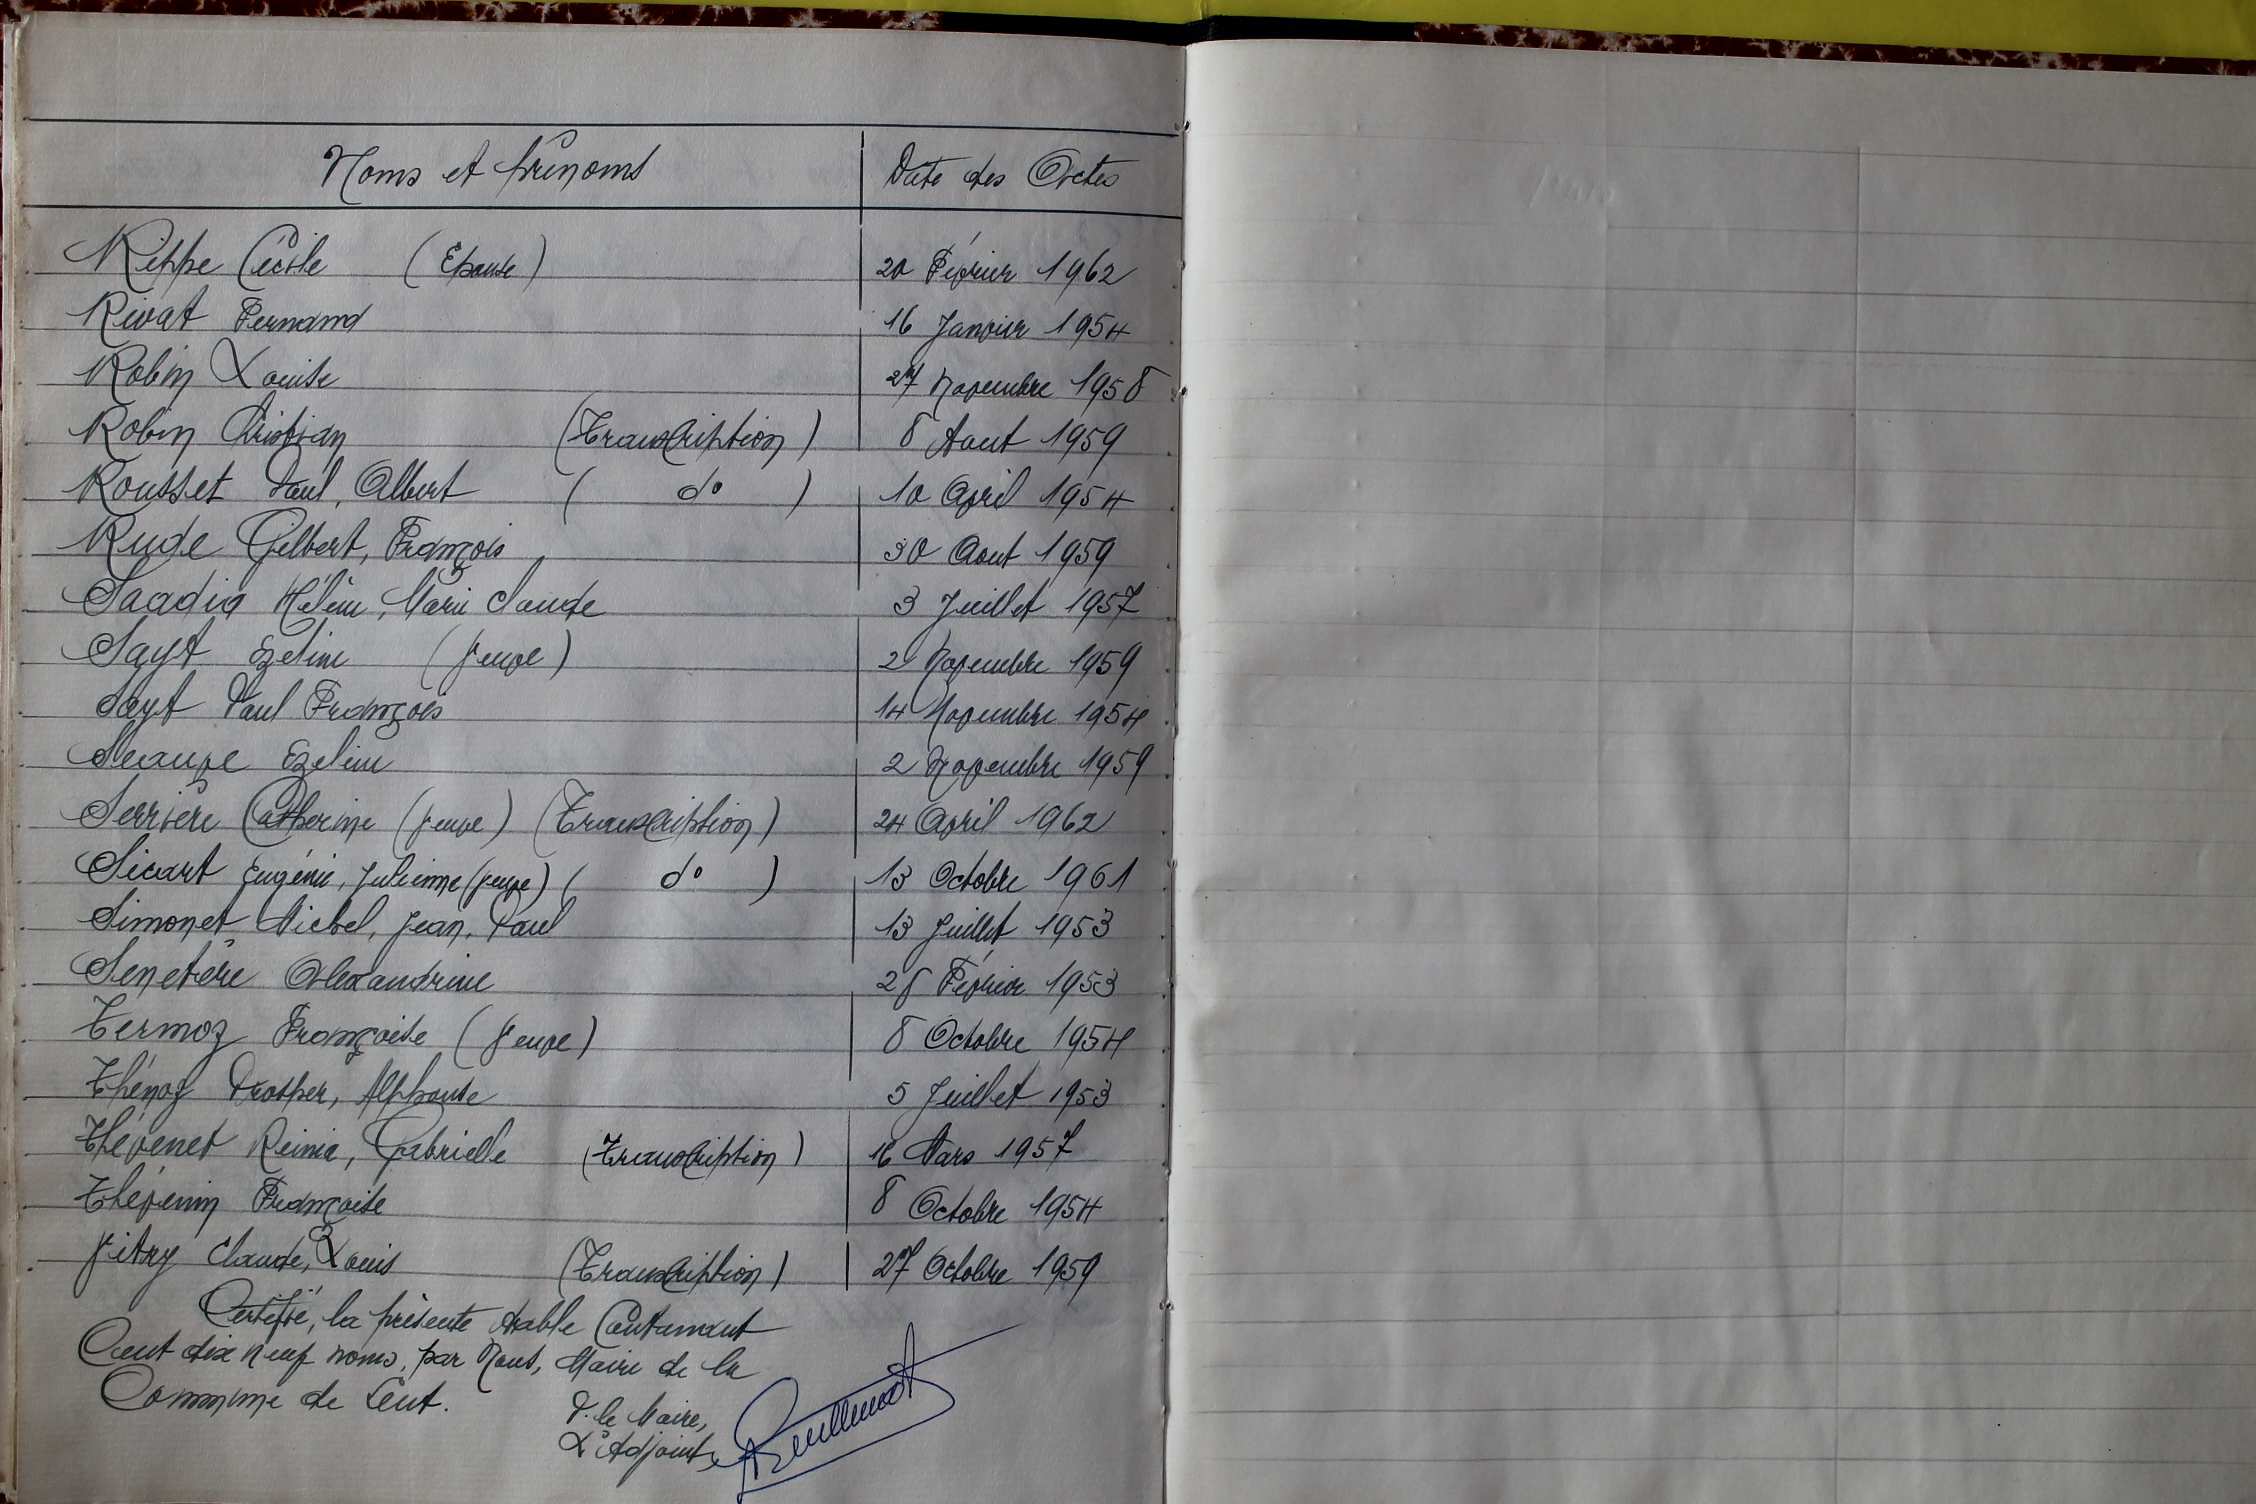 Noms et Prénoms Date des Actes
Rippe Cécile (Epouse) 20 Février 1962
Rivat Fernand 16 Janvier 1954
Robin Louise 27 Novembre 1958
Robin Christian (Transcription) 8 Aout 1959
Rousset Paul, Albert ( d° ) 10 Avril 1954
Rude Gilbert, François 30 Aout 1959
Saadia Hélène, Marie Claude 3 Juillet 1957
Sayt Ezeline (Veuve) 2 Novembre 1959
Sayt Paul François 14 Novembre 1954
Sceauve Ezeline 2 Novembre 1959
Serrière Catherine (Veuve) (Transcription) 24 Avril 1962
Sicart Eugénie, Julienne (Veuve) ( d° ) 13 Octobre 1961
Simonet Michel, Jean, Paul 13 Juillet 1953
Senetère Alexandrine 28 Février 1953
Termoz Françoise (Veuve) 8 Octobre 1954
Thénoz Prosper, Alphonse 5 Juillet 1953
Thévenet Reinie, Gabrielle (Transcription) 16 Mars 1957
Thévenin Françoise 8 Octobre 1954
Vitry Claude, Louis (Transcription) 27 Octobre 1959
Certifié, la présente table Contenant
Cent dix neuf noms, par Nous, Maire de la
Commune de Lent.
P. le Maire,
L'Adjoint,